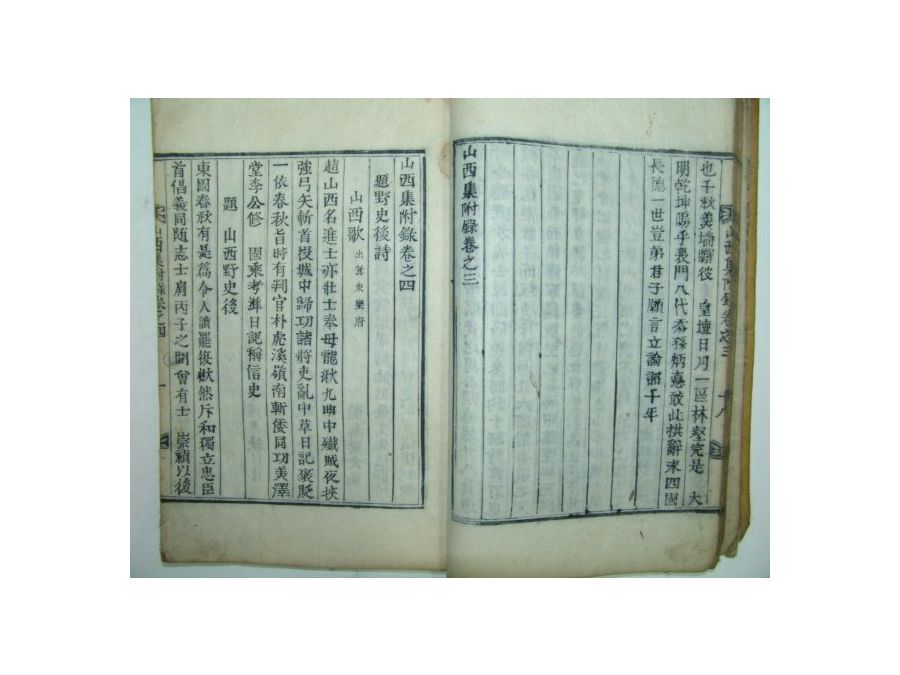 也千秋義墻關彼 皇壇日月一區林壑完是 大
明乾坤嗚乎裴門八代孫炳憙敢此拱辭求四國
長德一世豈弟君子願言立論詔千年
山西集附錄卷之三
山西集附錄卷之三 十八
山西集附錄卷之四
題野史後詩
山西歌 出 東樂府
趙山西名進士亦壯士奉母龍湫九明中殲賊夜挾
強弓矢斬首授城中歸功諸將吏亂中草日記褒貶
一依春秋旨時有判官朴虎溪嶺南斬倭同功美澤
堂李公修 國乘考準日記稱信史
題 山西野史後
東國春秋有是篇令人讀罷後愀然斥和獨立忠臣
首倡義同隨志士肩丙子之間曾有士 崇禎以後
山西集附錄卷之四 一